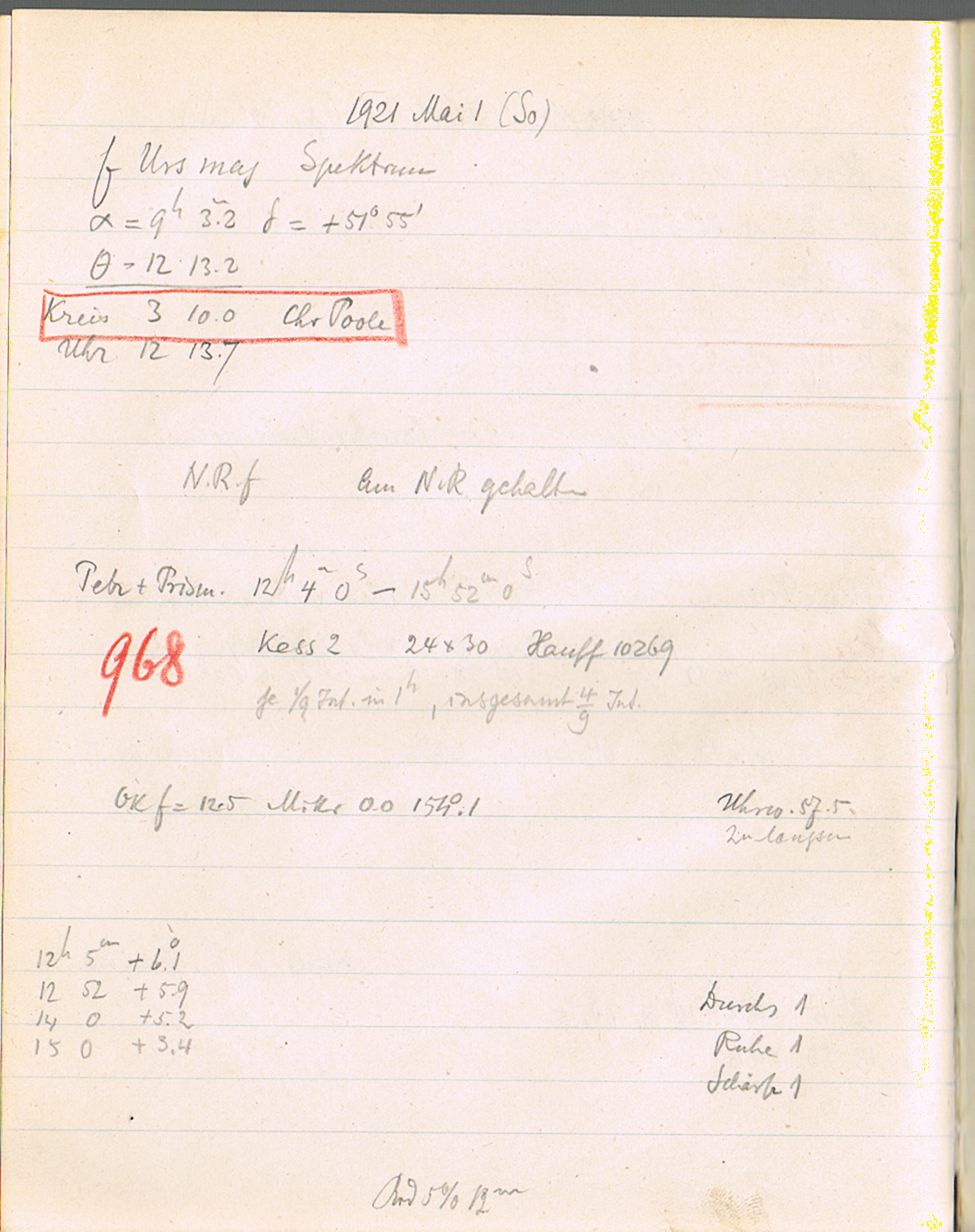 1921 Mai 1 (So)
f Urs maj Spektrum
α = 9h 3m.2 δ = +51° 55'
θ = 12 13.2
Kreis 3 10.0 Chr Poole
Uhr 12 13.7
N.R. f am N.R gehalten
Petz + Prism. 12h 4m 0s — 15h 52m 0s
968 Kess 2 24x30 Hauff 10269
je 1/9 Int. in 1h, insgesamt 4/9 Int.
OK f = 12.5 Mikr 0.0 154°.1
Uhrw. 57.5
zu langsam
12h 5m +6.1°
12 52 +5.9
14 0 +5.2
15 0 +3.4
Durchs 1
Ruhe 1
Schärfe 1
Rod 5% 12m